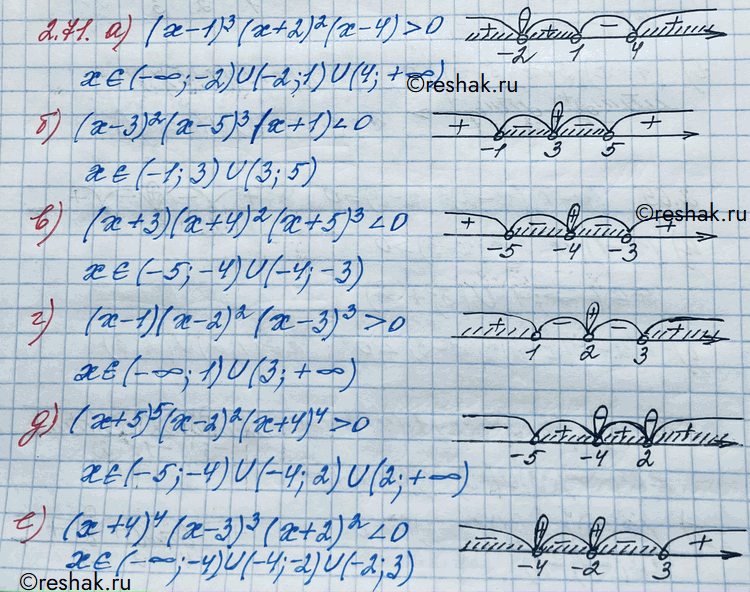 2.71. а) (x-1)³(x+2)²(x-4)>0 + + - + -2 1 4
x∈(-∞;-2)∪(-2;1)∪(4;+∞)
©reshak.ru
б) (x-3)²(x-5)³(x+1)<0 + - - + -1 3 5
x∈(-1;3)∪(3;5)
в) (x+3)(x+4)²(x+5)³<0 + - + - + -5 -4 -3
©reshak.ru
x∈(-5;-4)∪(-4;-3)
г) (x-1)(x-2)²(x-3)³>0 + - + - + 1 2 3
x∈(-∞;1)∪(3;+∞)
д) (x+5)⁵(x-2)²(x+4)⁴>0 - + + + -5 -4 2
x∈(-5;-4)∪(-4;2)∪(2;+∞)
е) (x+4)⁴(x-3)³(x+2)²<0 - + - + - + -4 -2 3
x∈(-∞;-4)∪(-4;-2)∪(-2;3)
©reshak.ru